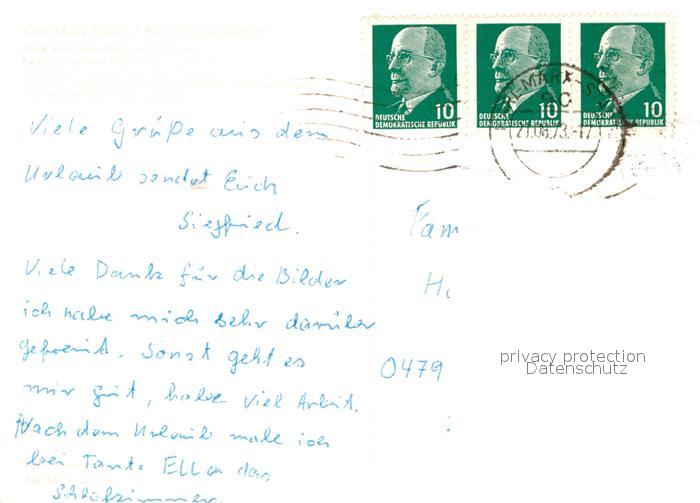 Karl-Marx-Stadt / Kepr-Henes-Wegert
10
DEUTSCHE
DEMOKRATISCHE REPUBLIK
10
DEUTSCHE
DEMOKRATISCHE REPUBLIK
10
DEUTSCHE
DEMOKRATISCHE REPUBLIK
-MARX-S
21.08.73.-17
Viele Grüße aus dem
Urlaub sendet Euch
Siegfried.
Fam
Viele Dank für die Bilder
ich habe mich sehr darüber
gefreut. Sonst geht es
mir gut, habe viel Arbeit.
Nach dem Urlaub male ich
bei Tante ELLa das
Schlafzimmer.
0479
privacy protection
Datenschutz